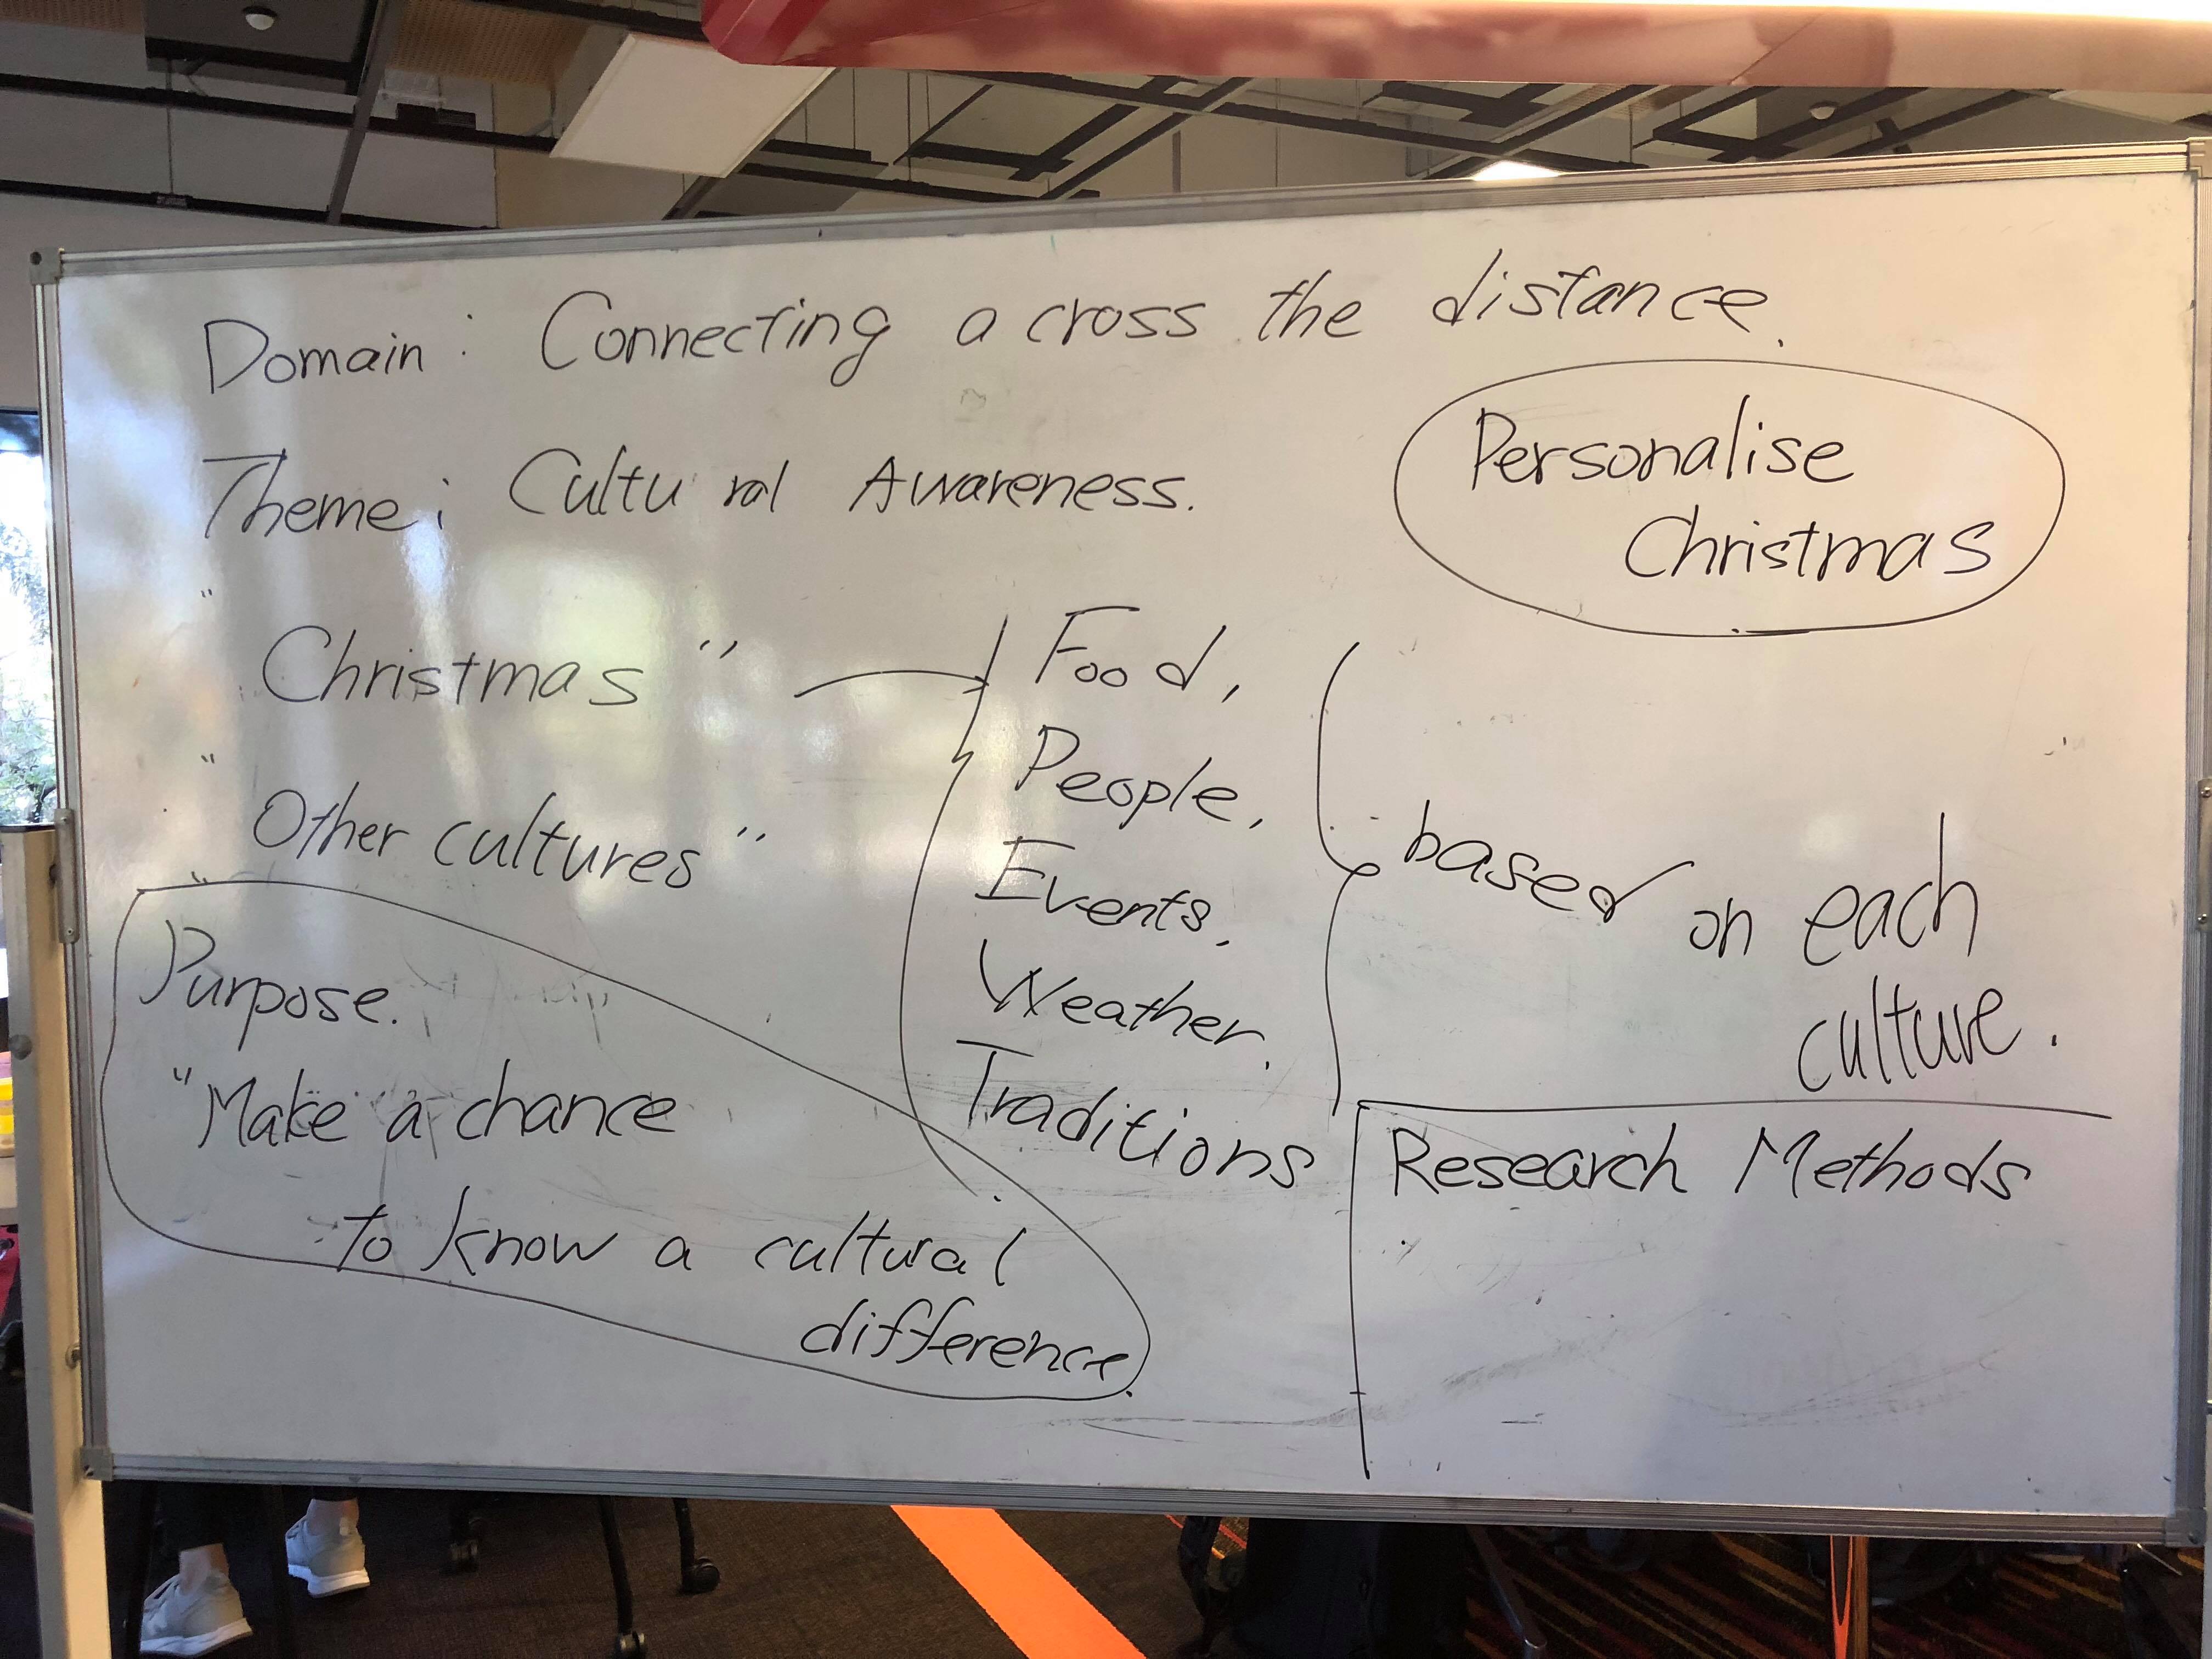 Domain : Connecting across the distance.
Theme : Cultural Awareness.
Personalise
Christmas
" Christmas "
" Other cultures "
Food,
People,
Events,
Weather,
Traditions
based on each
culture.
Purpose.
"Make a chance
to know a cultural
difference.
Research Methods